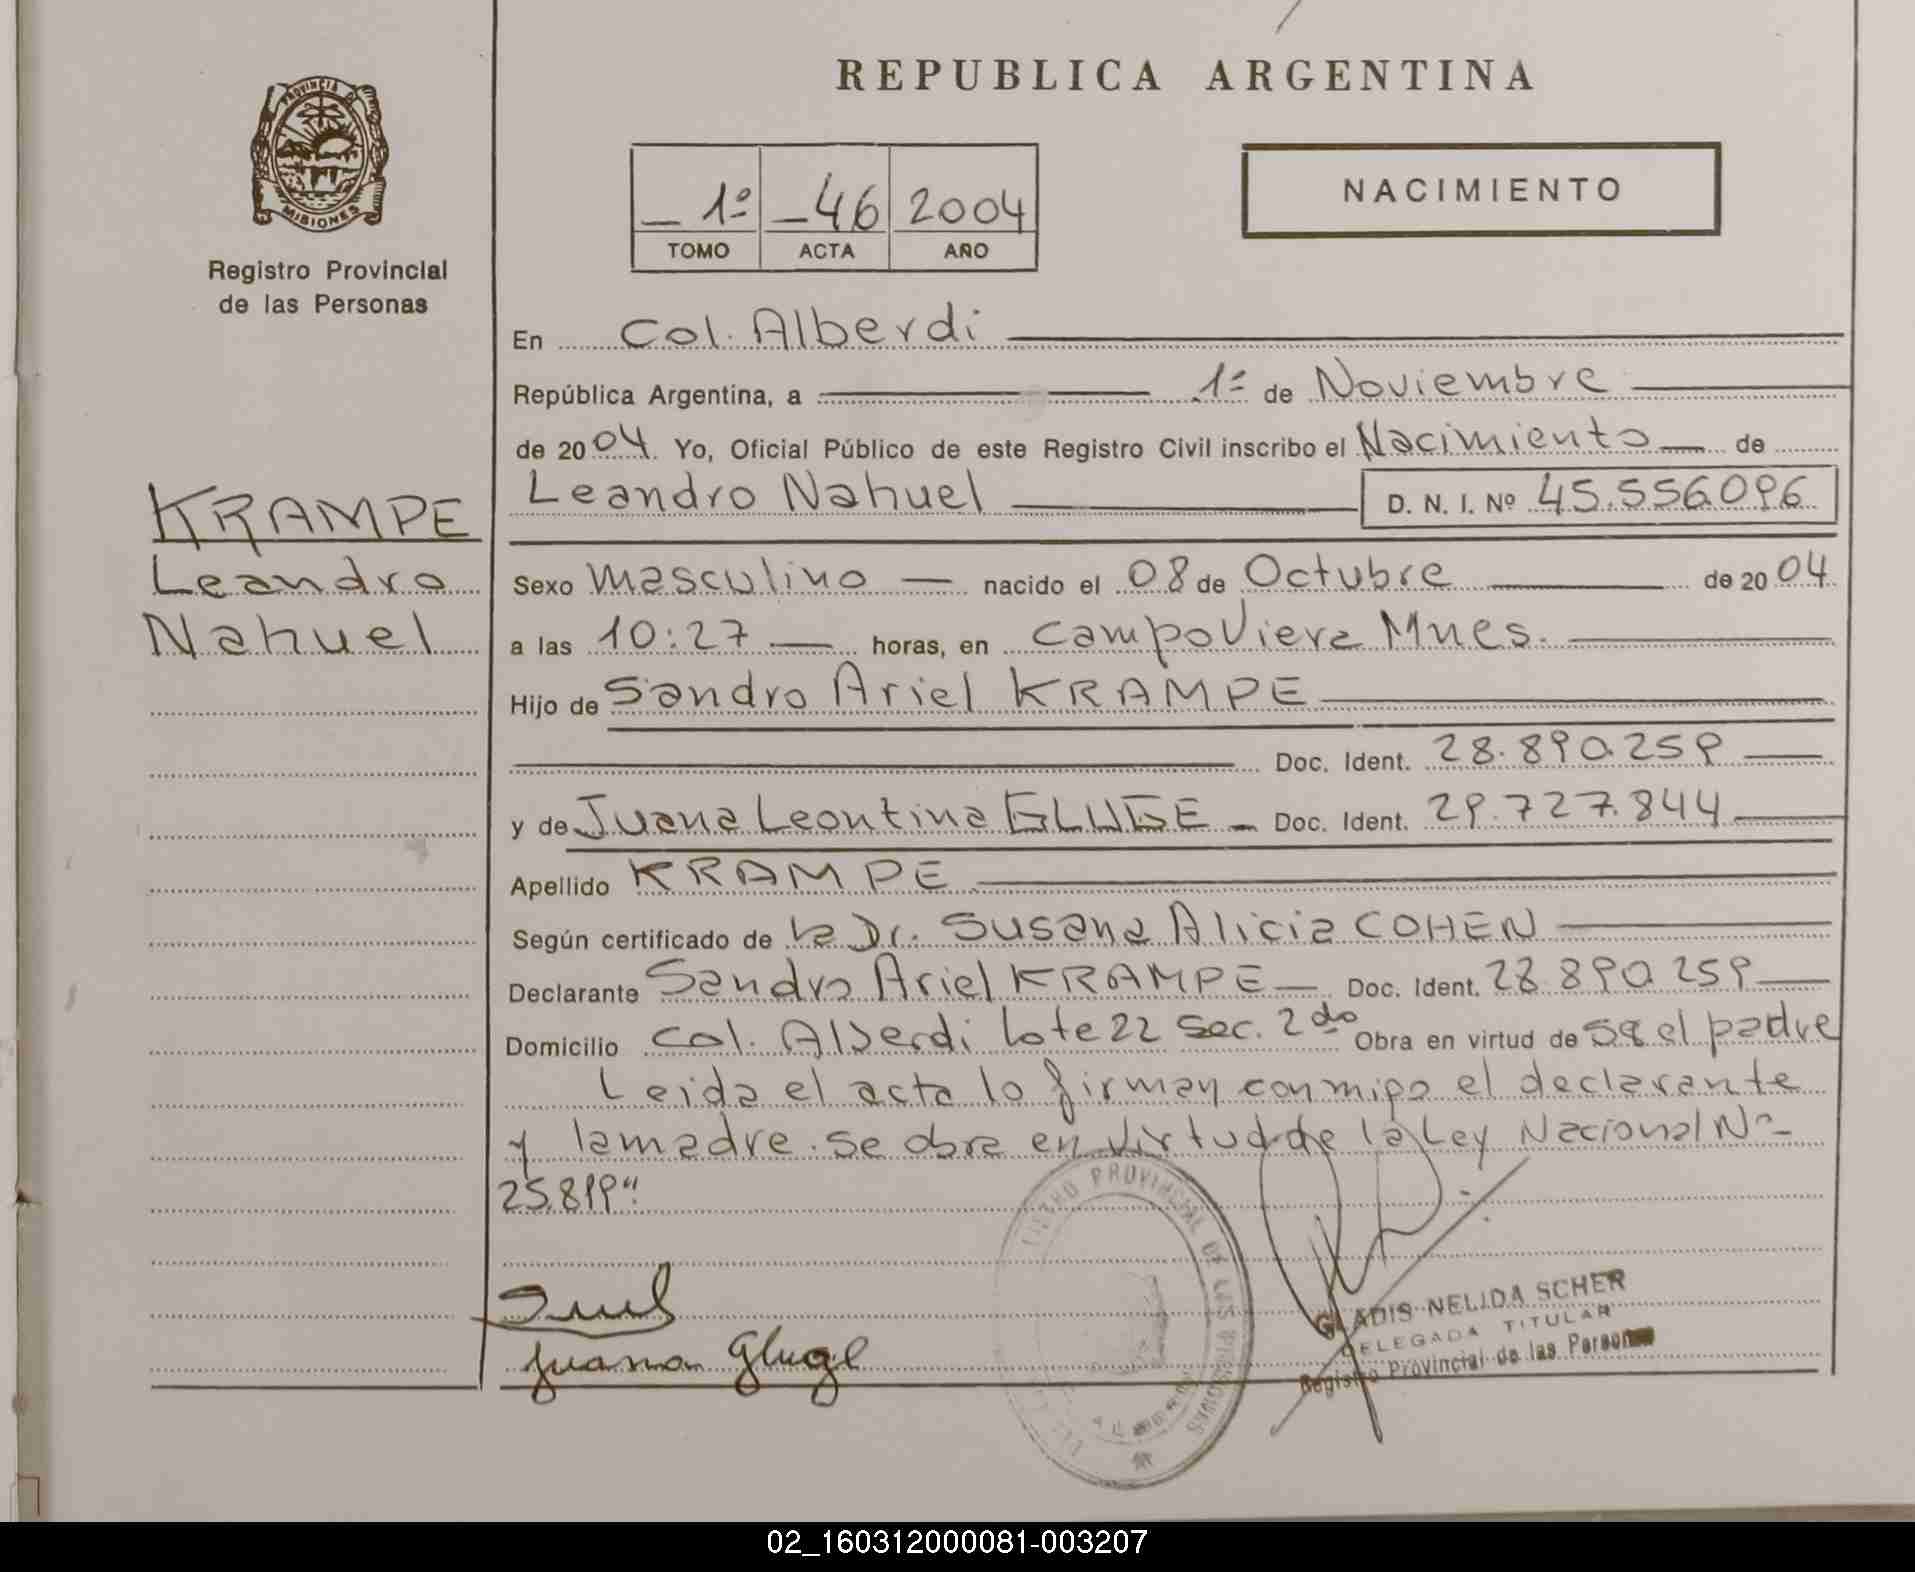 REPUBLICA ARGENTINA
PROVINCIA DE
MISIONES
Registro Provincial
de las Personas
1º 46 2004
TOMO ACTA AÑO
NACIMIENTO
KRAMPE
Leandro
Nahuel
En Col. Alberdi
República Argentina, a 1º de Noviembre
de 2004. Yo, Oficial Público de este Registro Civil inscribo el Nacimiento de
Leandro Nahuel D. N. I. Nº 45.556.096
Sexo Masculino nacido el 08 de Octubre de 2004
a las 10:27 horas, en Campo Viera Mnes.
Hijo de Sandro Ariel KRAMPE
Doc. Ident. 28.890.259
y de Juana Leontina GLUGE Doc. Ident. 29.727.844
Apellido KRAMPE
Según certificado de la Dr. Susana Alicia COHEN
Declarante Sandro Ariel KRAMPE Doc. Ident. 28.890.259
Domicilio Col. Alberdi lote 22 Sec. 2do Obra en virtud de el padre
Leida el acta lo firman conmigo el declarante
y la madre. Se obra en virtud de la Ley Nacional Nº
25.819"
Juana Gluge
REGISTRO PROVINCIAL DE LAS PERSONAS
GLADIS NELIDA SCHER
DELEGADA TITULAR
Registro Provincial de las Personas
02_160312000081-003207